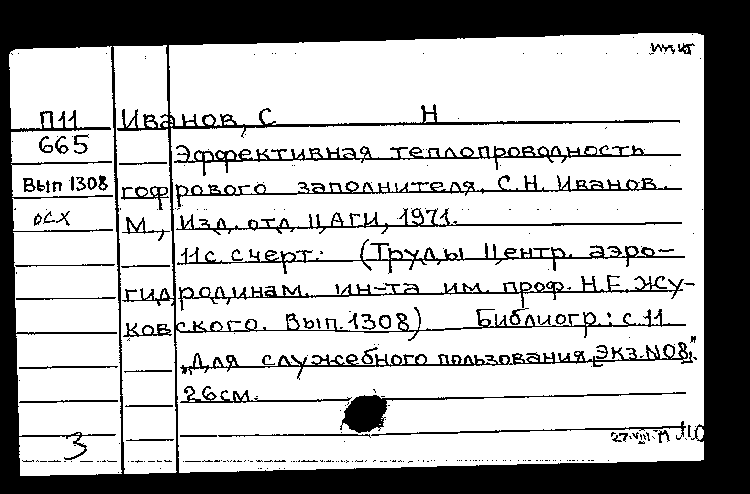 П11 Иванов, С Н
665 Эффективная теплопроводность
Вып 1308 гофрового заполнителя. С.Н. Иванов.
осх М., Изд. отд ЦАГИ, 1971.
11с с черт. (Труды Центр. аэро-
гидродинам. ин-та им. проф. Н.Е. Жу-
ковского. Вып. 1308) Библиогр.: с. 11
„Для служебного пользования, Экз. N08."
26см.
3 27.VIII.71